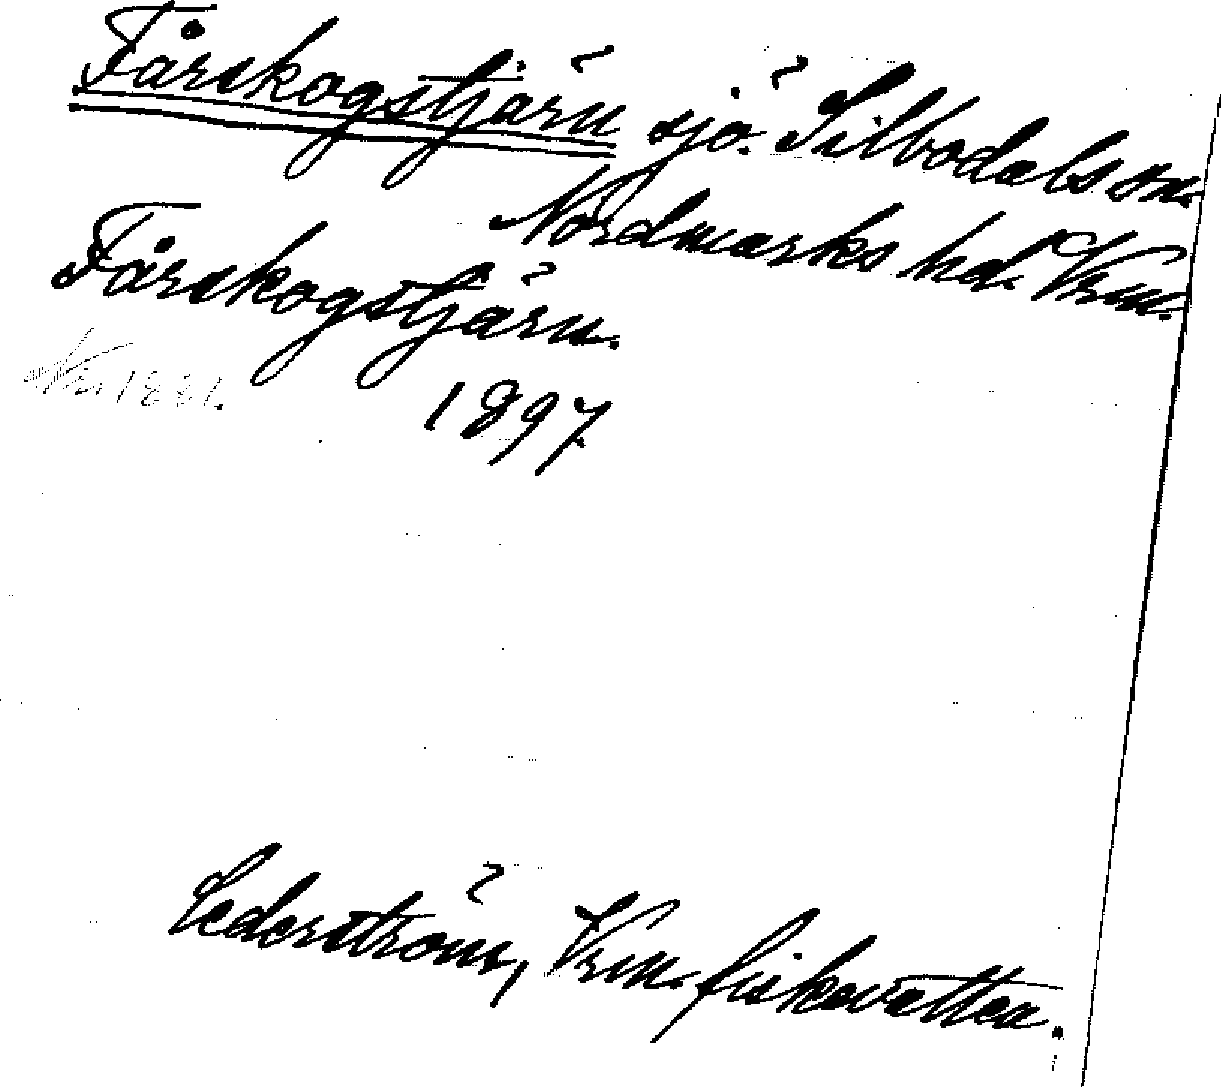 Fårskogstjärn sjö. Silbodals sn.
Nordmarks hd. Vrm.
Fårskogstjärn.
1897
Cederström, Vrm. fiskevatten.